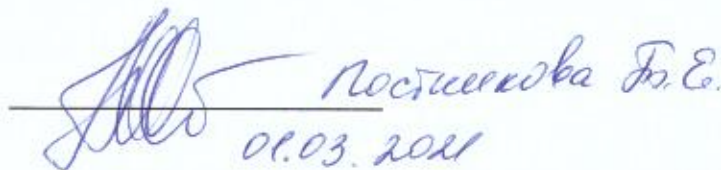 Постникова Т.Е.
01.03.2021